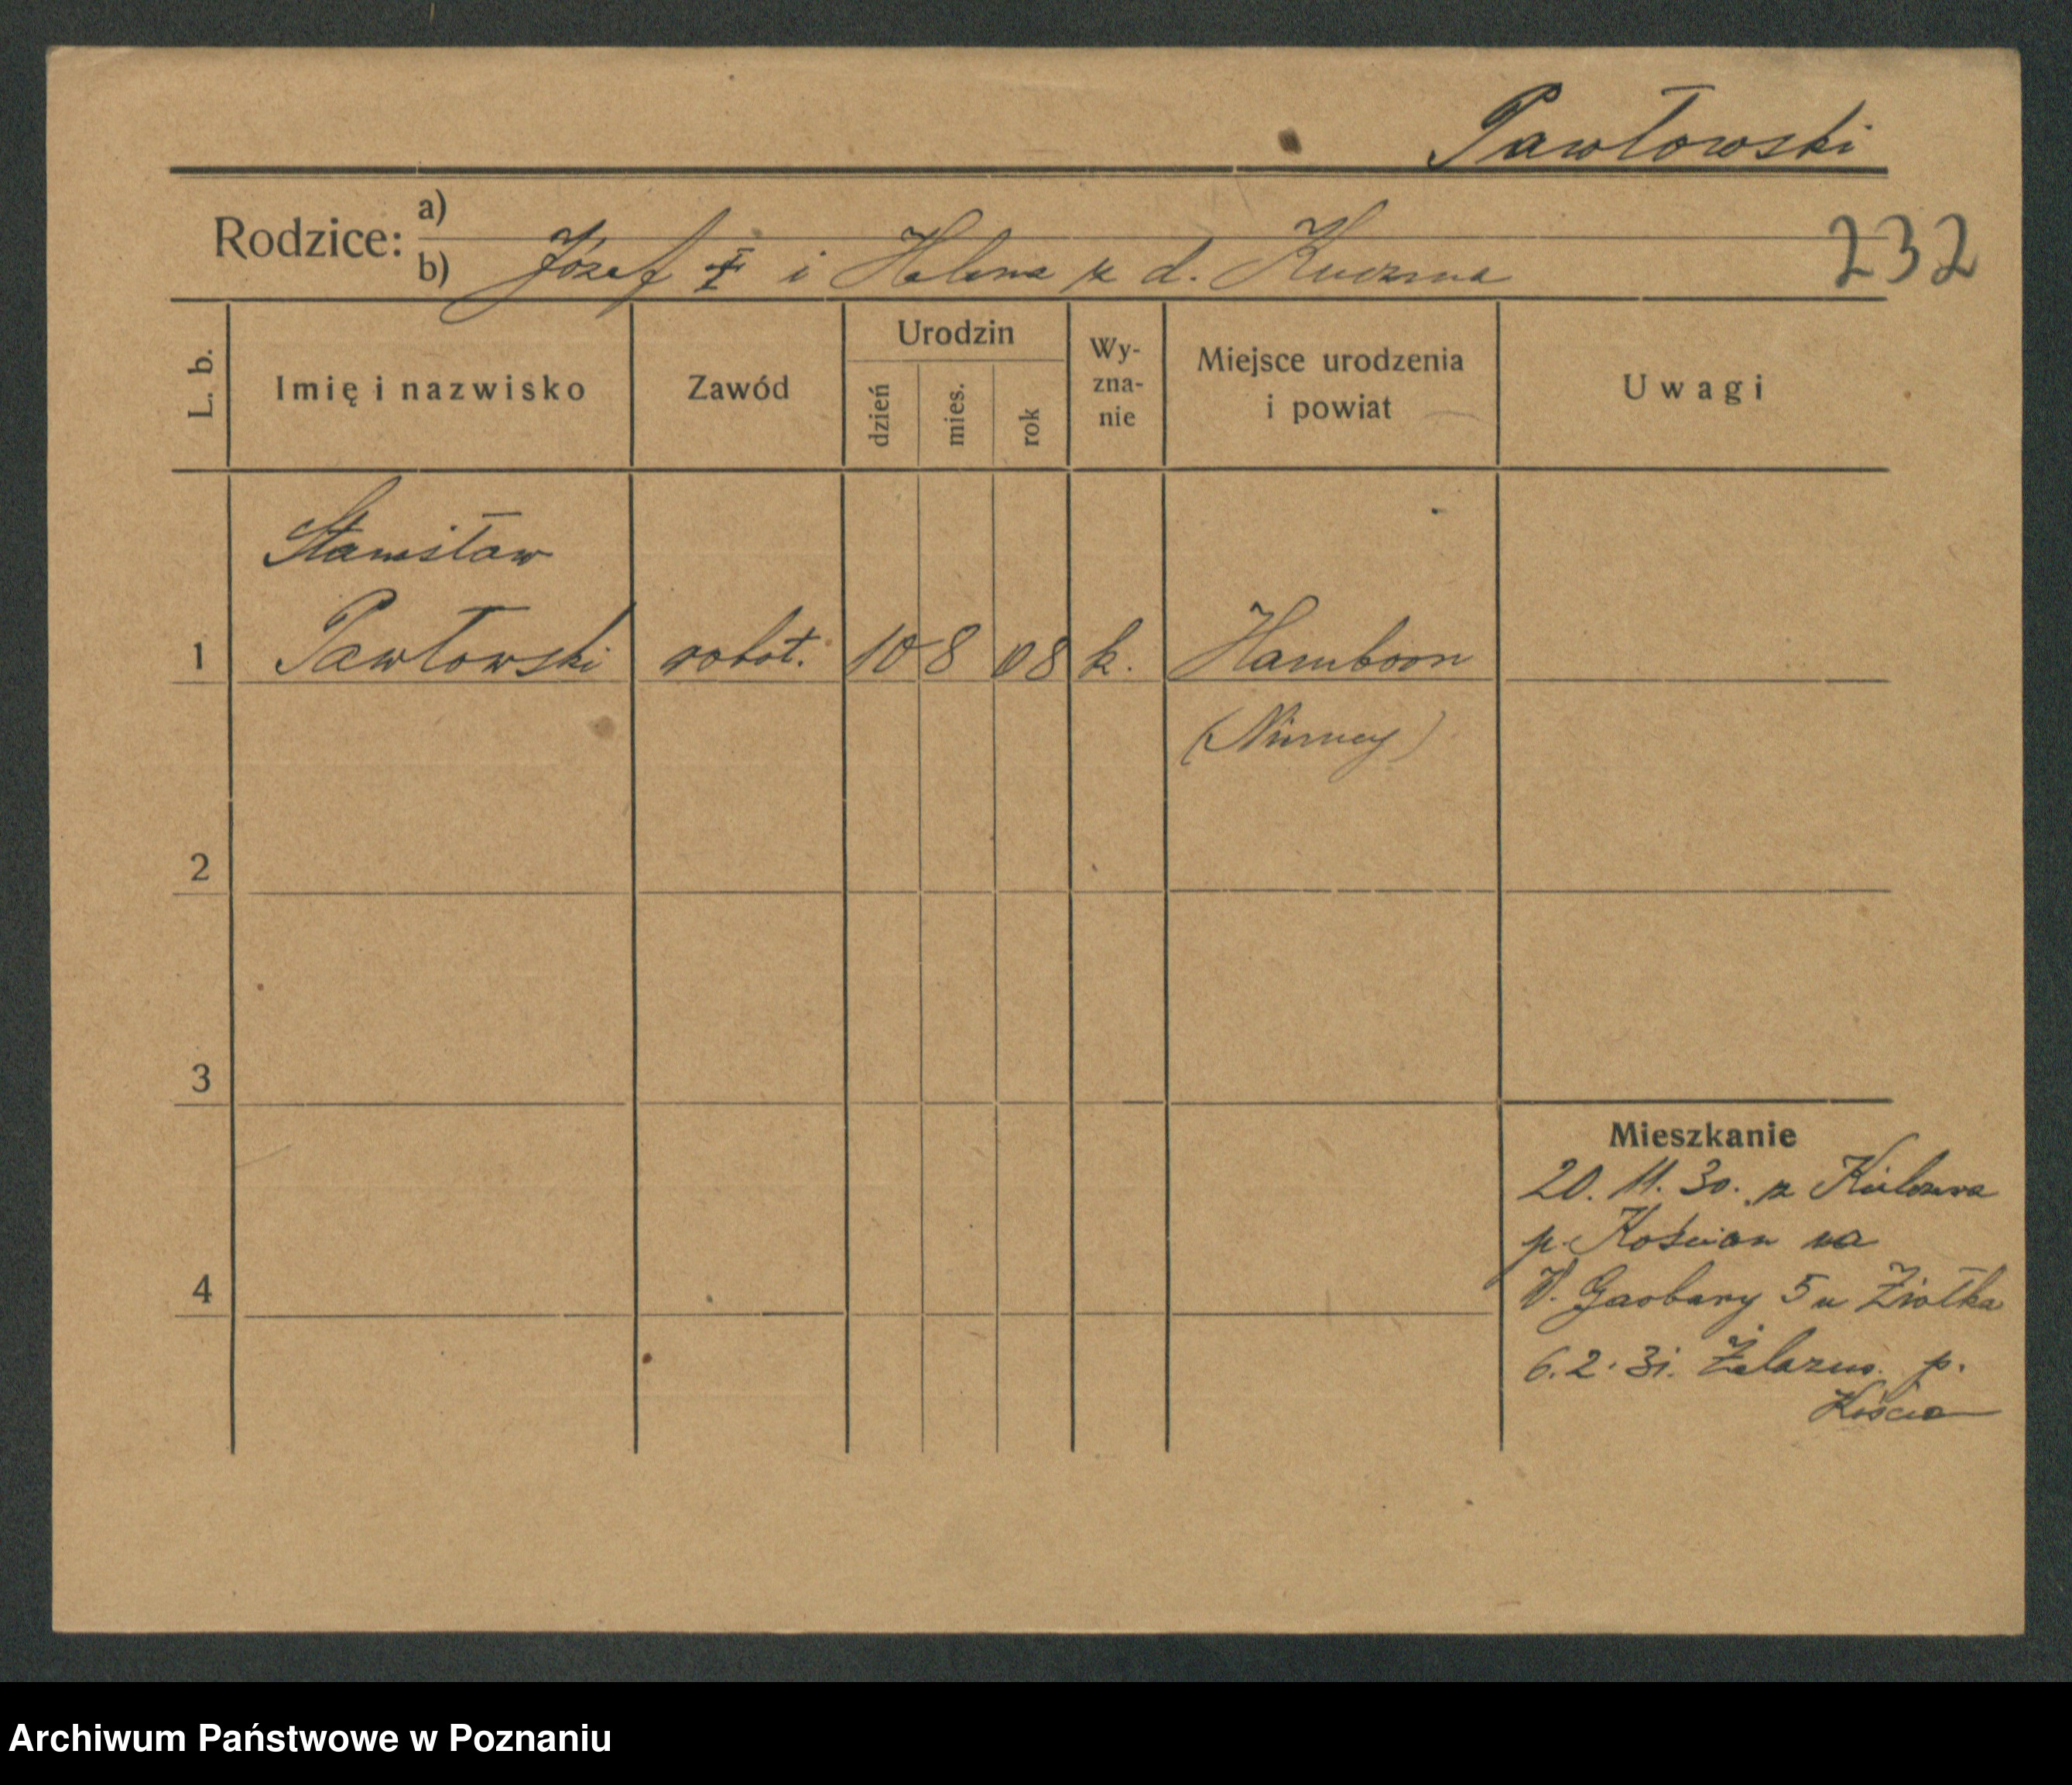 Pawłowski
Rodzice: a)
b) Józef † i Helena z d. Kuczma
232
L. b.
Imię i nazwisko
Zawód
Urodzin
dzień
mies.
rok
Wy-
zna-
nie
Miejsce urodzenia
i powiat
Uwagi
Stanisław
1 Pawłowski robot. 10 8 08 k. Hamborn
(Niemcy)
2
3
4
Mieszkanie
20. 11. 30. z
p. Kościan na
W. Garbary 5 u Ziółka
6. 2. 31. p.
Kościan
Archiwum Państwowe w Poznaniu